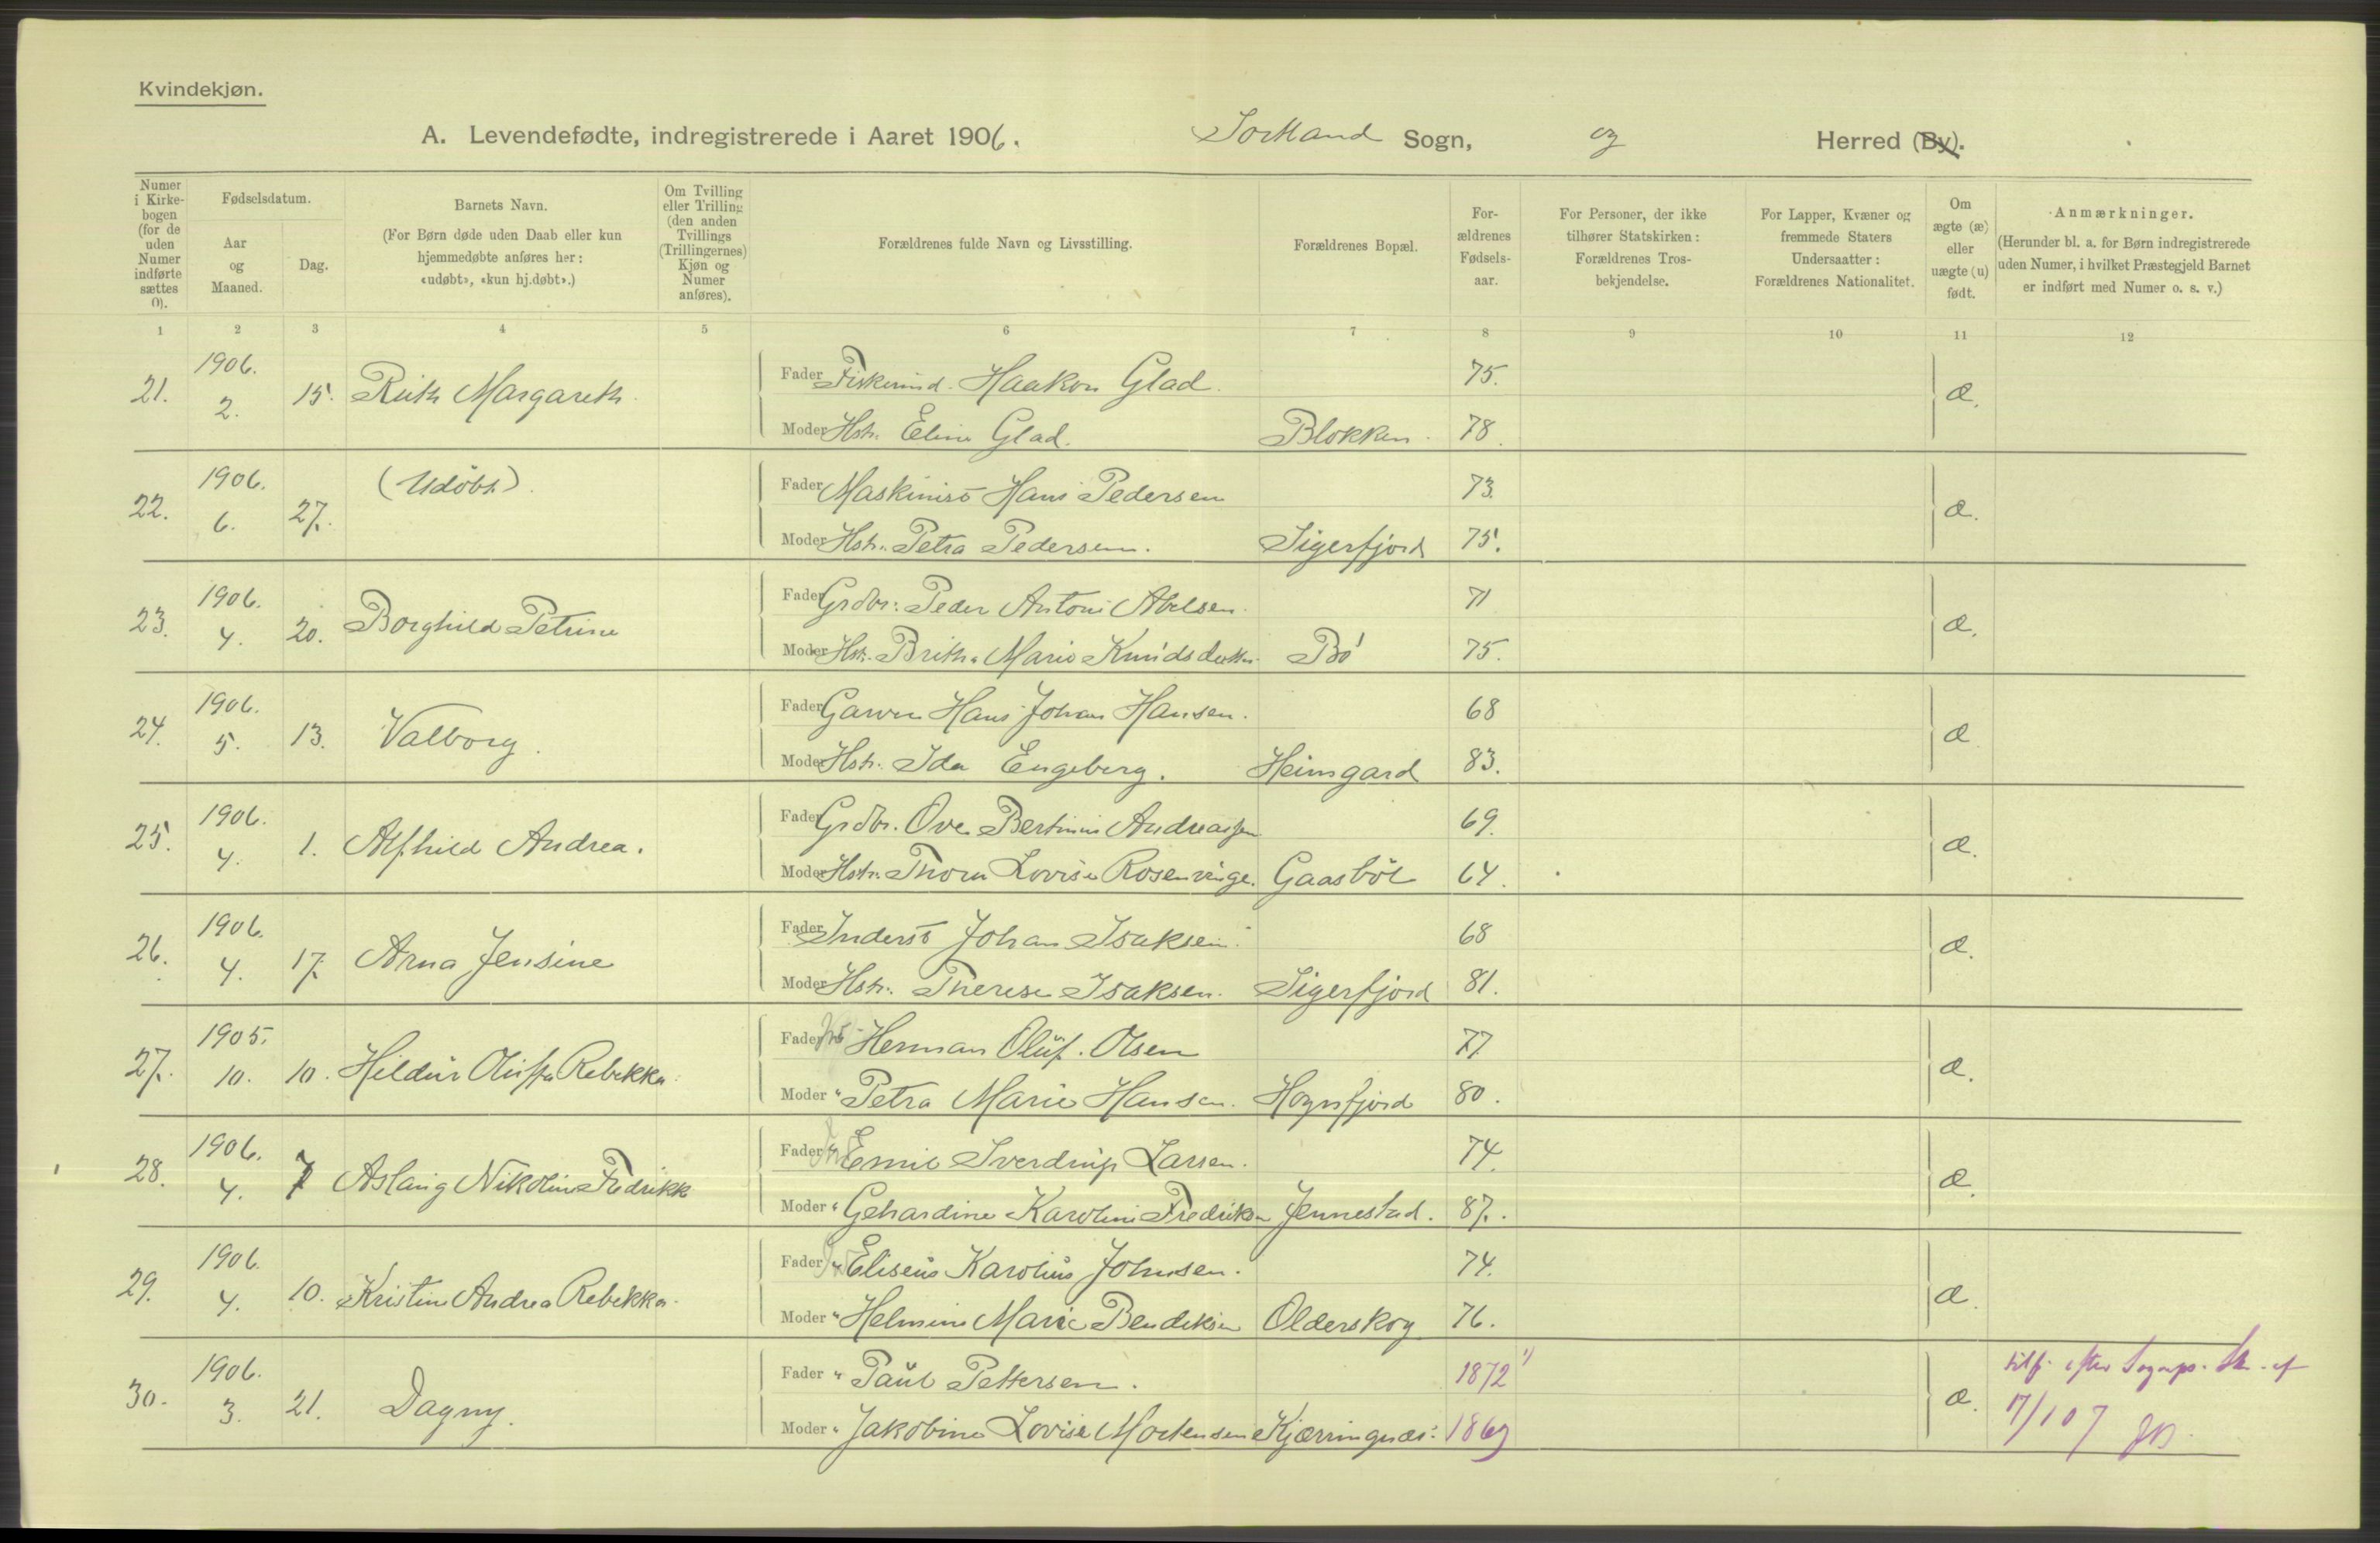 Kvindekjøn.
A. Levendefødte, indregistrerede i Aaret 1906. Sortland Sogn, og Herred (By).
Numer i Kirkebogen (for de uden Numer indførte sættes 0).
Fødselsdatum.
Aar og Maaned.
Dag.
Barnets Navn.
(For Børn døde uden Daab eller kun hjemmedøbte anføres her: «udøbt», «kun hj.døbt».)
Om Tvilling eller Trilling (den anden Tvillings (Trillingernes) Kjøn og Numer anføres).
Forældrenes fulde Navn og Livsstilling.
Forældrenes Bopæl.
For-ældrenes Fødsels-aar.
For Personer, der ikke tilhører Statskirken: Forældrenes Tros-bekjendelse.
For Lapper, Kvæner og fremmede Staters Undersaatter: Forældrenes Nationalitet.
Om ægte (æ) eller uægte (u) født.
Anmærkninger.
(Herunder bl. a. for Børn indregistrerede uden Numer, i hvilket Præstegjeld Barnet er indført med Numer o. s. v.)
1 2 3 4 5 6 7 8 9 10 11 12
21. 1906. 2. 15. Ruth Margareth
Fader Fiskerind. Haakon Glad. 75.
Moder Hstr. Eline Glad. Blokken. 78. æ.
22. 1906. 6. 27. (Udöbt).
Fader Maskinist Hans Pedersen 73.
Moder Hstr. Petra Pedersen. Sigerfjord 75. æ.
23. 1906. 4. 20. Borghild Petrine
Fader Grdbr. Peder Antoni Abelsen. 71
Moder Hstr. Brith Marie Knudsdatter Bö 75. æ.
24. 1906. 5. 13. Valborg.
Fader Garver Hans Johan Hansen. 68
Moder Hstr. Ida Engeberg. Heimgard 83. æ
25. 1906. 4. 1. Alfhild Andrea.
Fader Grdbr. Ove Bertinus Andreassen 69.
Moder Hstr. Thora Lovise Rosenvinge. Gaasböl 64. æ.
26. 1906. 4. 17. Arna Jensine
Fader Inderst Johan Isaksen. 68
Moder Hstr. Therese Isaksen. Sigerfjord 81. æ.
27. 1905. 10. 10. Hildur Oluffa Rebekka.
Fader Herman Oluf. Olsen 77
Moder " Petra Marie Hansen. Hognfjord 80. æ.
28. 1906. 4. 7 Aslaug Nikoline Fredrikk
Fader " Emil Sverdrup Larsen. 74.
Moder " Gehardine Karoline Fredriksen Jennestad. 87. æ.
29. 1906. 4. 10. Kristine Andrea Rebekka.
Fader " Eliseus Karolius Johnsen. 74.
Moder " Helmine Marie Bendiksen Olderskog 76. æ.
30. 1906. 3. 21. Dagny.
Fader " Paul Pettersen. 1872 1)
Moder " Jakobine Lovise Mortensen Kjærringnæs. 1869 æ.
tilf. efter Sognepr. Skr. af
17/1 07